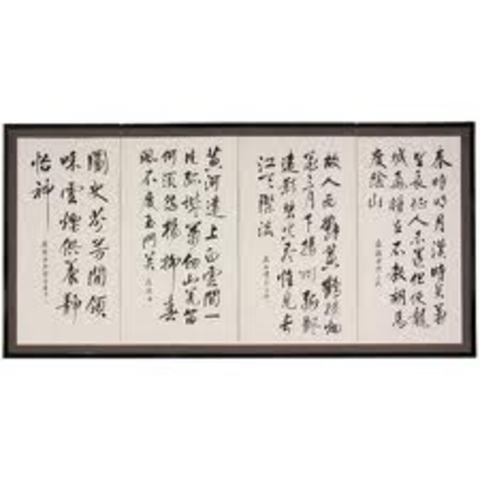 秦時明月漢時關萬
里長征人未還但使龍
城飛將在不教胡馬
度陰山
故人西辭黃鶴樓煙
花三月下揚州孤帆
遠影碧空盡惟見長
江天際流
黃河遠上白雲間一
片孤城萬仞山羌笛
何須怨楊柳春
風不度玉門關
圖史芬芳閒領
味雲煙供養靜
怡神